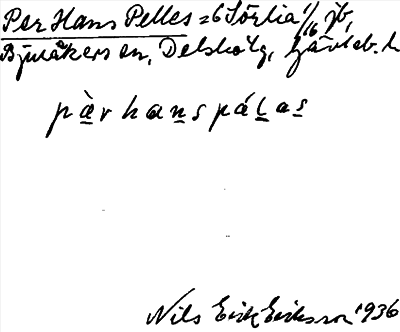 Per Hans Pelles = 6 Sörlia 1/16 jb,
Bjuråkers sn, Delsbo tg, Gävleb. l.
pàrhanspálas
Nils Erik Eriksson 1936